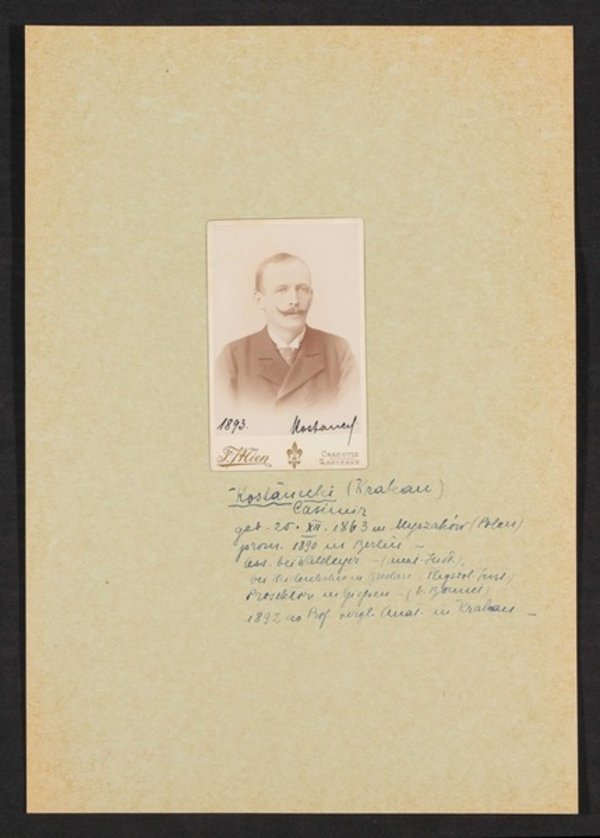 1893. Kostanecki
F. Mien
CRACOVIE
Kostanecki (Krakau)
Casimir
geb. 25. XII. 1863 in Myszaków (Polen)
prom. 1890 in Berlin –
Ass. bei Waldeyer – (anat. Inst.),
bei in Breslau
Prosektor in Giessen – (b. Bonnet)
1892 ao Prof. vergl. Anat. in Krakau –